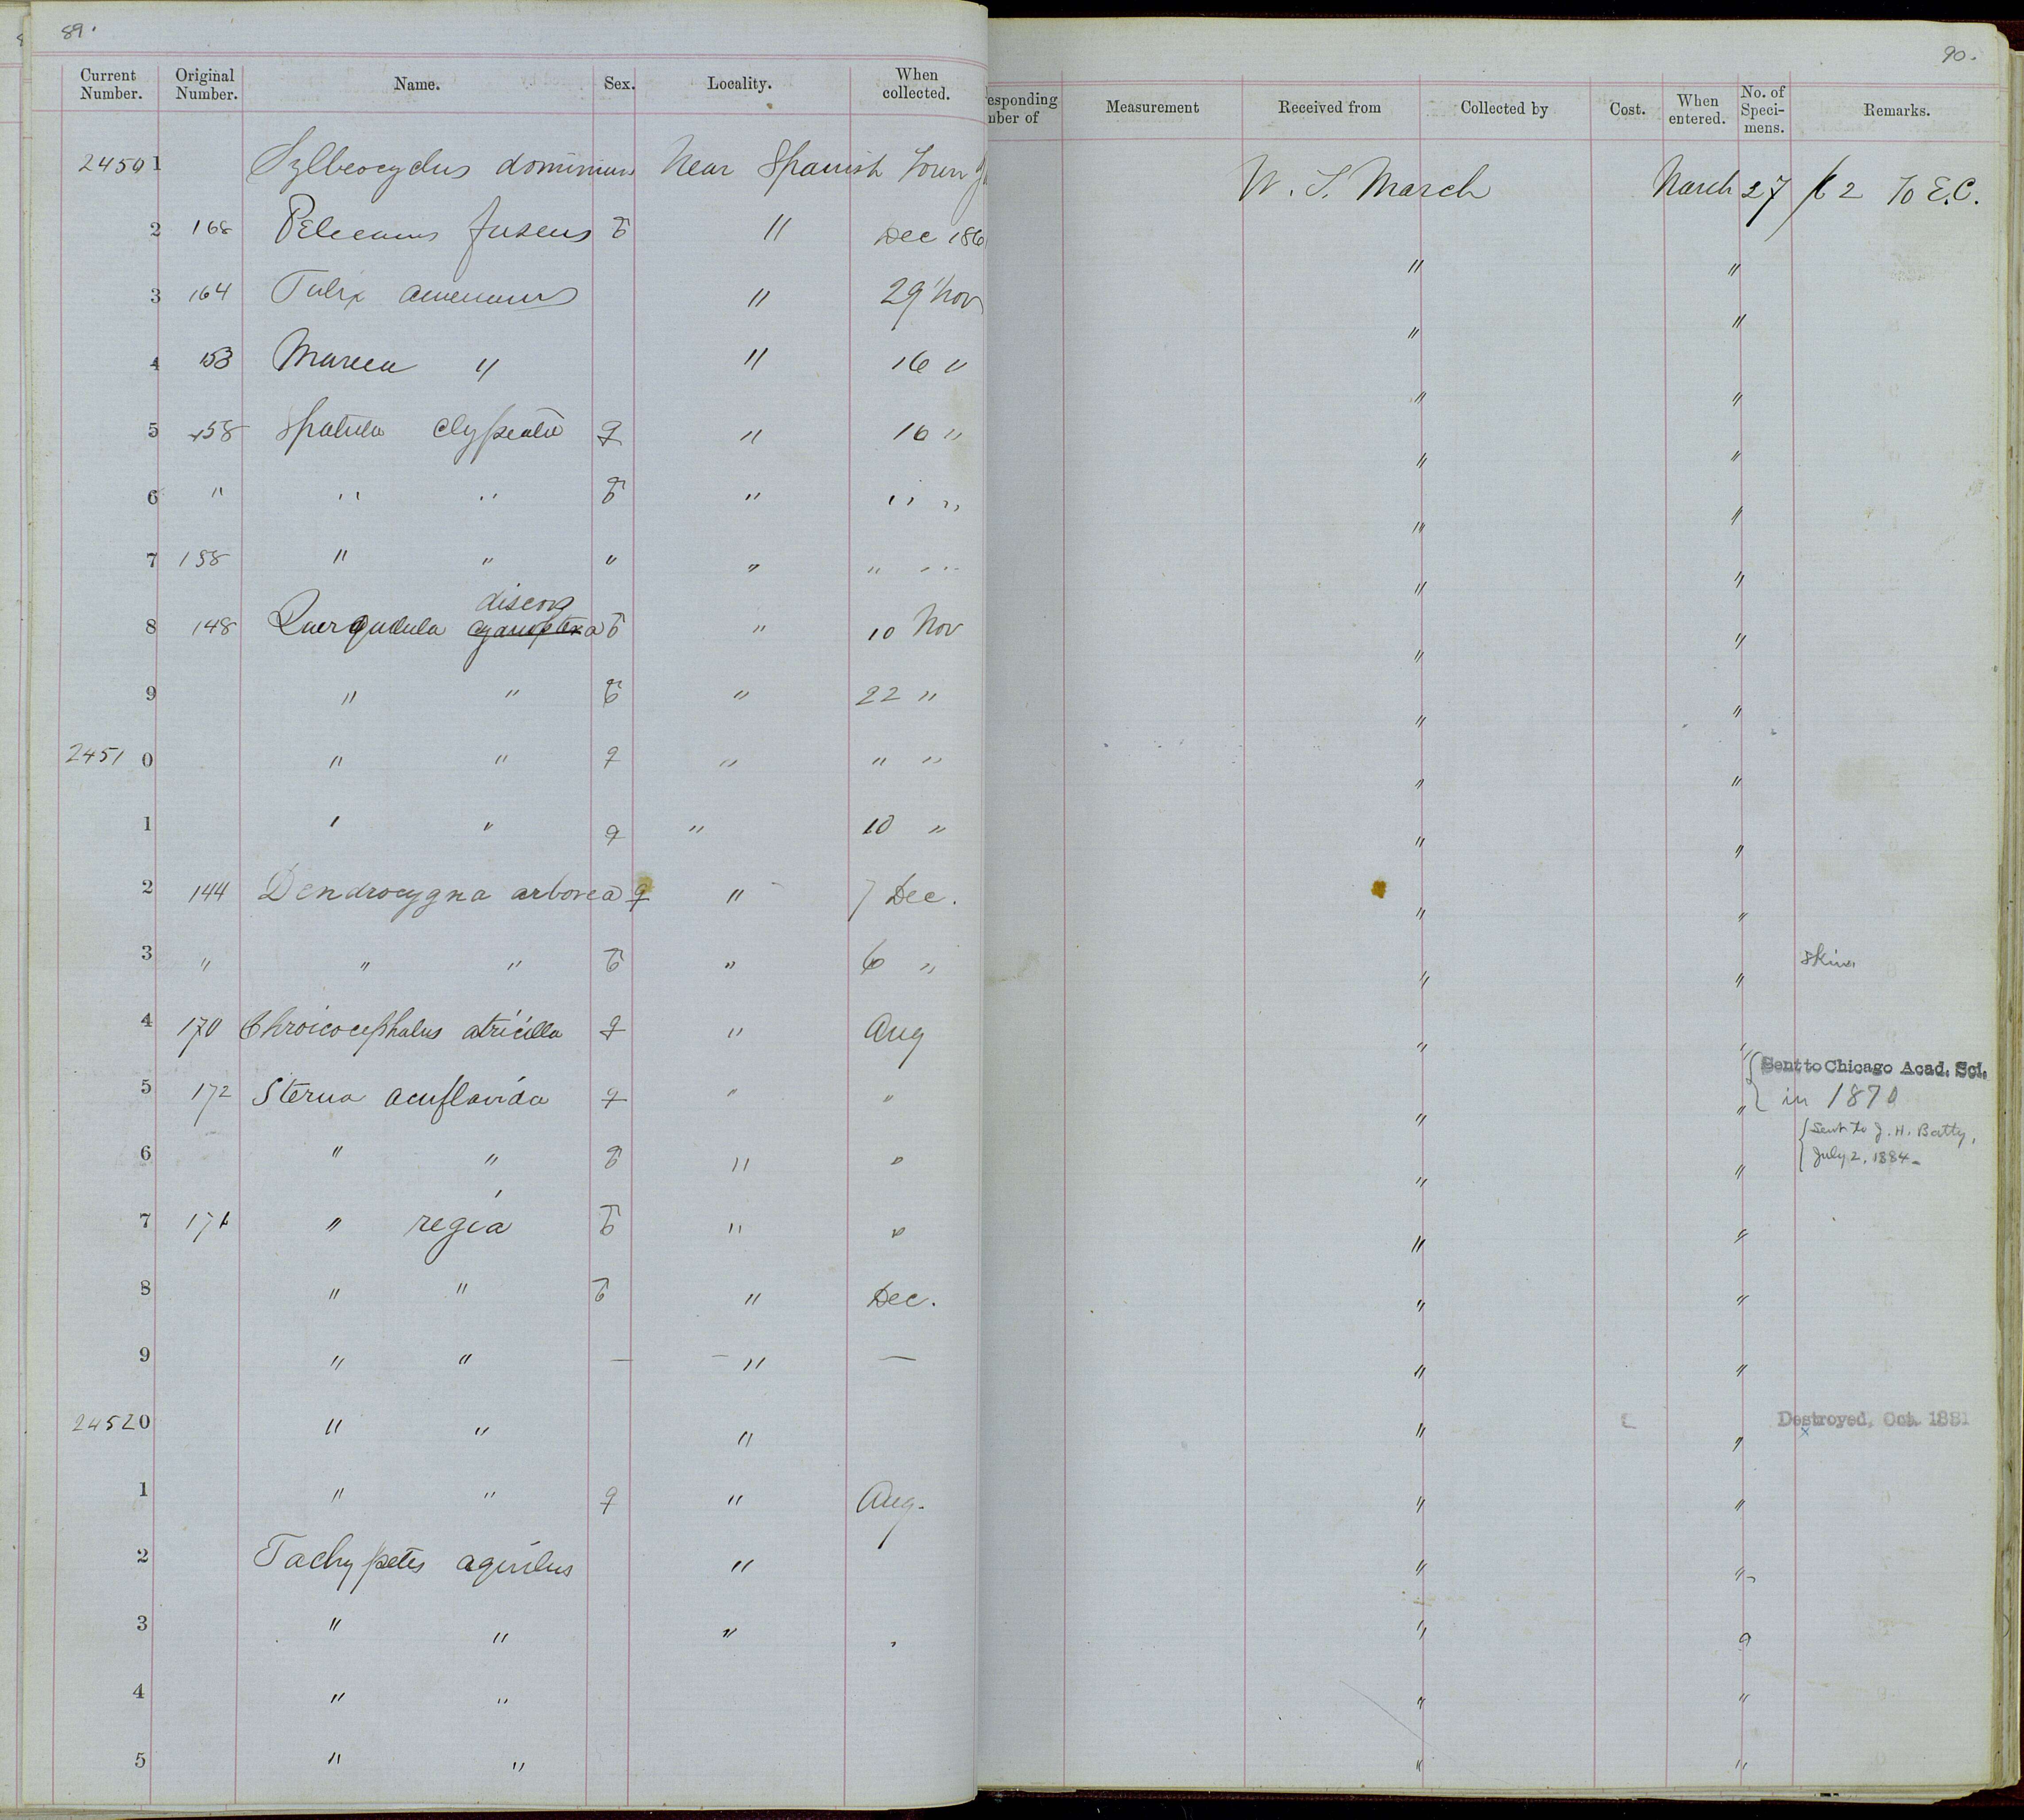 89.
Current Number. Original Number. Name. Sex. Locality. When collected.
24501 Sylbeocyclus dominicus Near Spanish Town
2 168 Pelecanus fuscus ♂ " Dec 186
3 164 Fulix americanus " 29 Nov
4 153 Mareca " " 16 "
5 158 Spatula clypeata ♀ " 16 "
6 " " " ♂ " " "
7 158 " " " " " "
discors
8 148 Querquedula cyanoptera ♂ " 10 Nov
9 " " ♂ " 22 "
24510 " " ♀ " " "
1 " " ♀ " 10 "
2 144 Dendrocygna arborea ♀ " 7 Dec.
3 " " " ♂ " 6 "
4 170 Chroicocephalus atricilla ♀ " Aug
5 172 Sterna acuflavida ♀ " "
6 " " ♂ " "
7 171 " regia ♂ " "
8 " " ♂ " Dec.
9 " " — — " —
24520 " " "
1 " " ♀ " Aug.
2 Tachypetes aquilus "
3 " " "
4 " "
5 " "
90.
responding
mber of Measurement Received from Collected by Cost. When entered. No. of Speci-mens. Remarks.
W. T. March March 27 /62 To E.C.
" "
" "
" "
" "
" "
" "
" "
" "
" "
" "
" "
" " skin
" "
Sent to Chicago Acad. Sci.
" " in 1870
Sent to J. H. Batty,
" " July 2, 1884-
" "
" "
" "
" " Destroyed, Oct. 1881
" "
" "
" "
" "
" "